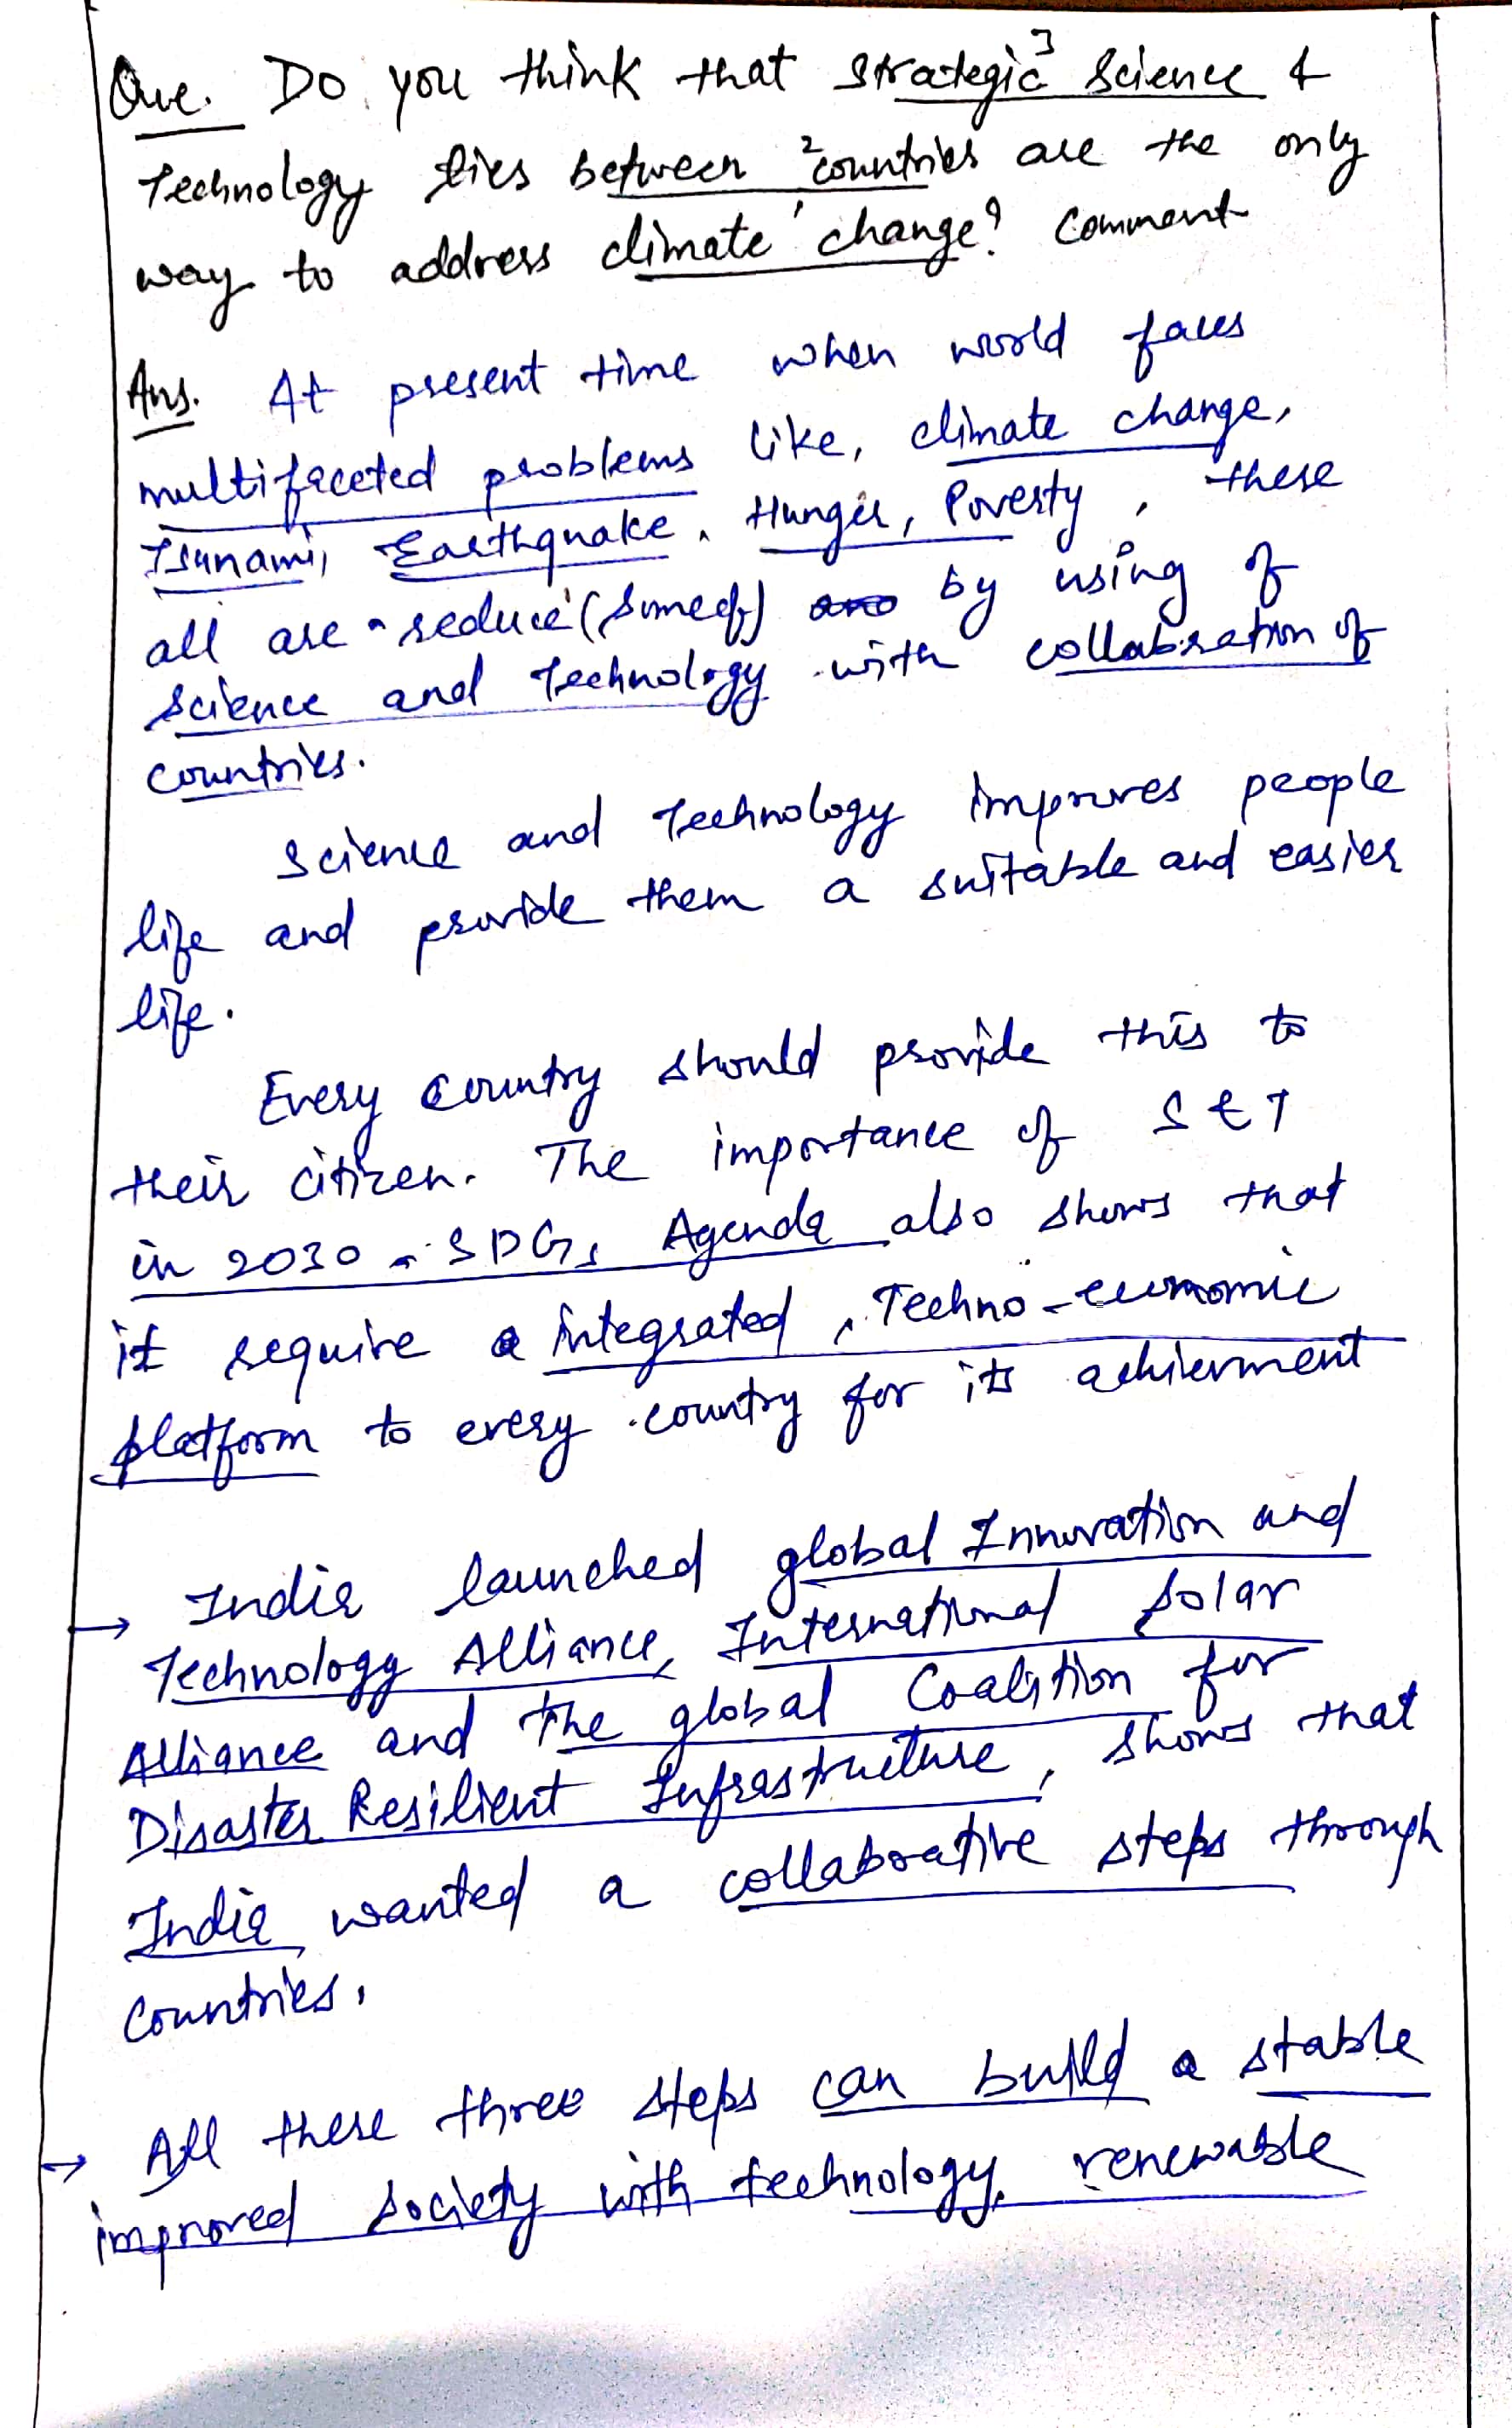 Que. Do you think that strategic³ Science &
Technology ties between ²countries are the only
way to address climate ¹ change? Comment
Ans. At present time when world faces
multifaceted problems like, climate change,
Tsunami, Earthquake, Hunger, Poverty, these
all are reduce (some of) by using of
Science and Technology with collabration of
countries.
Science and Technology improves people
life and provide them a suitable and easier
life.
Every country should provide this to
their citizen. The importance of S & T
in 2030 - SDGs Agenda also shows that
it require a integrated, Techno-economic
platform to every country for its achievment
→ India launched global Innovation and
Technology Alliance, International Solar
Alliance and the global Coalition for
Disaster Resilient Infrastructure, shows that
India wanted a collaborative steps through
countries.
→ All these three steps can build a stable
improved society with technology, renewable